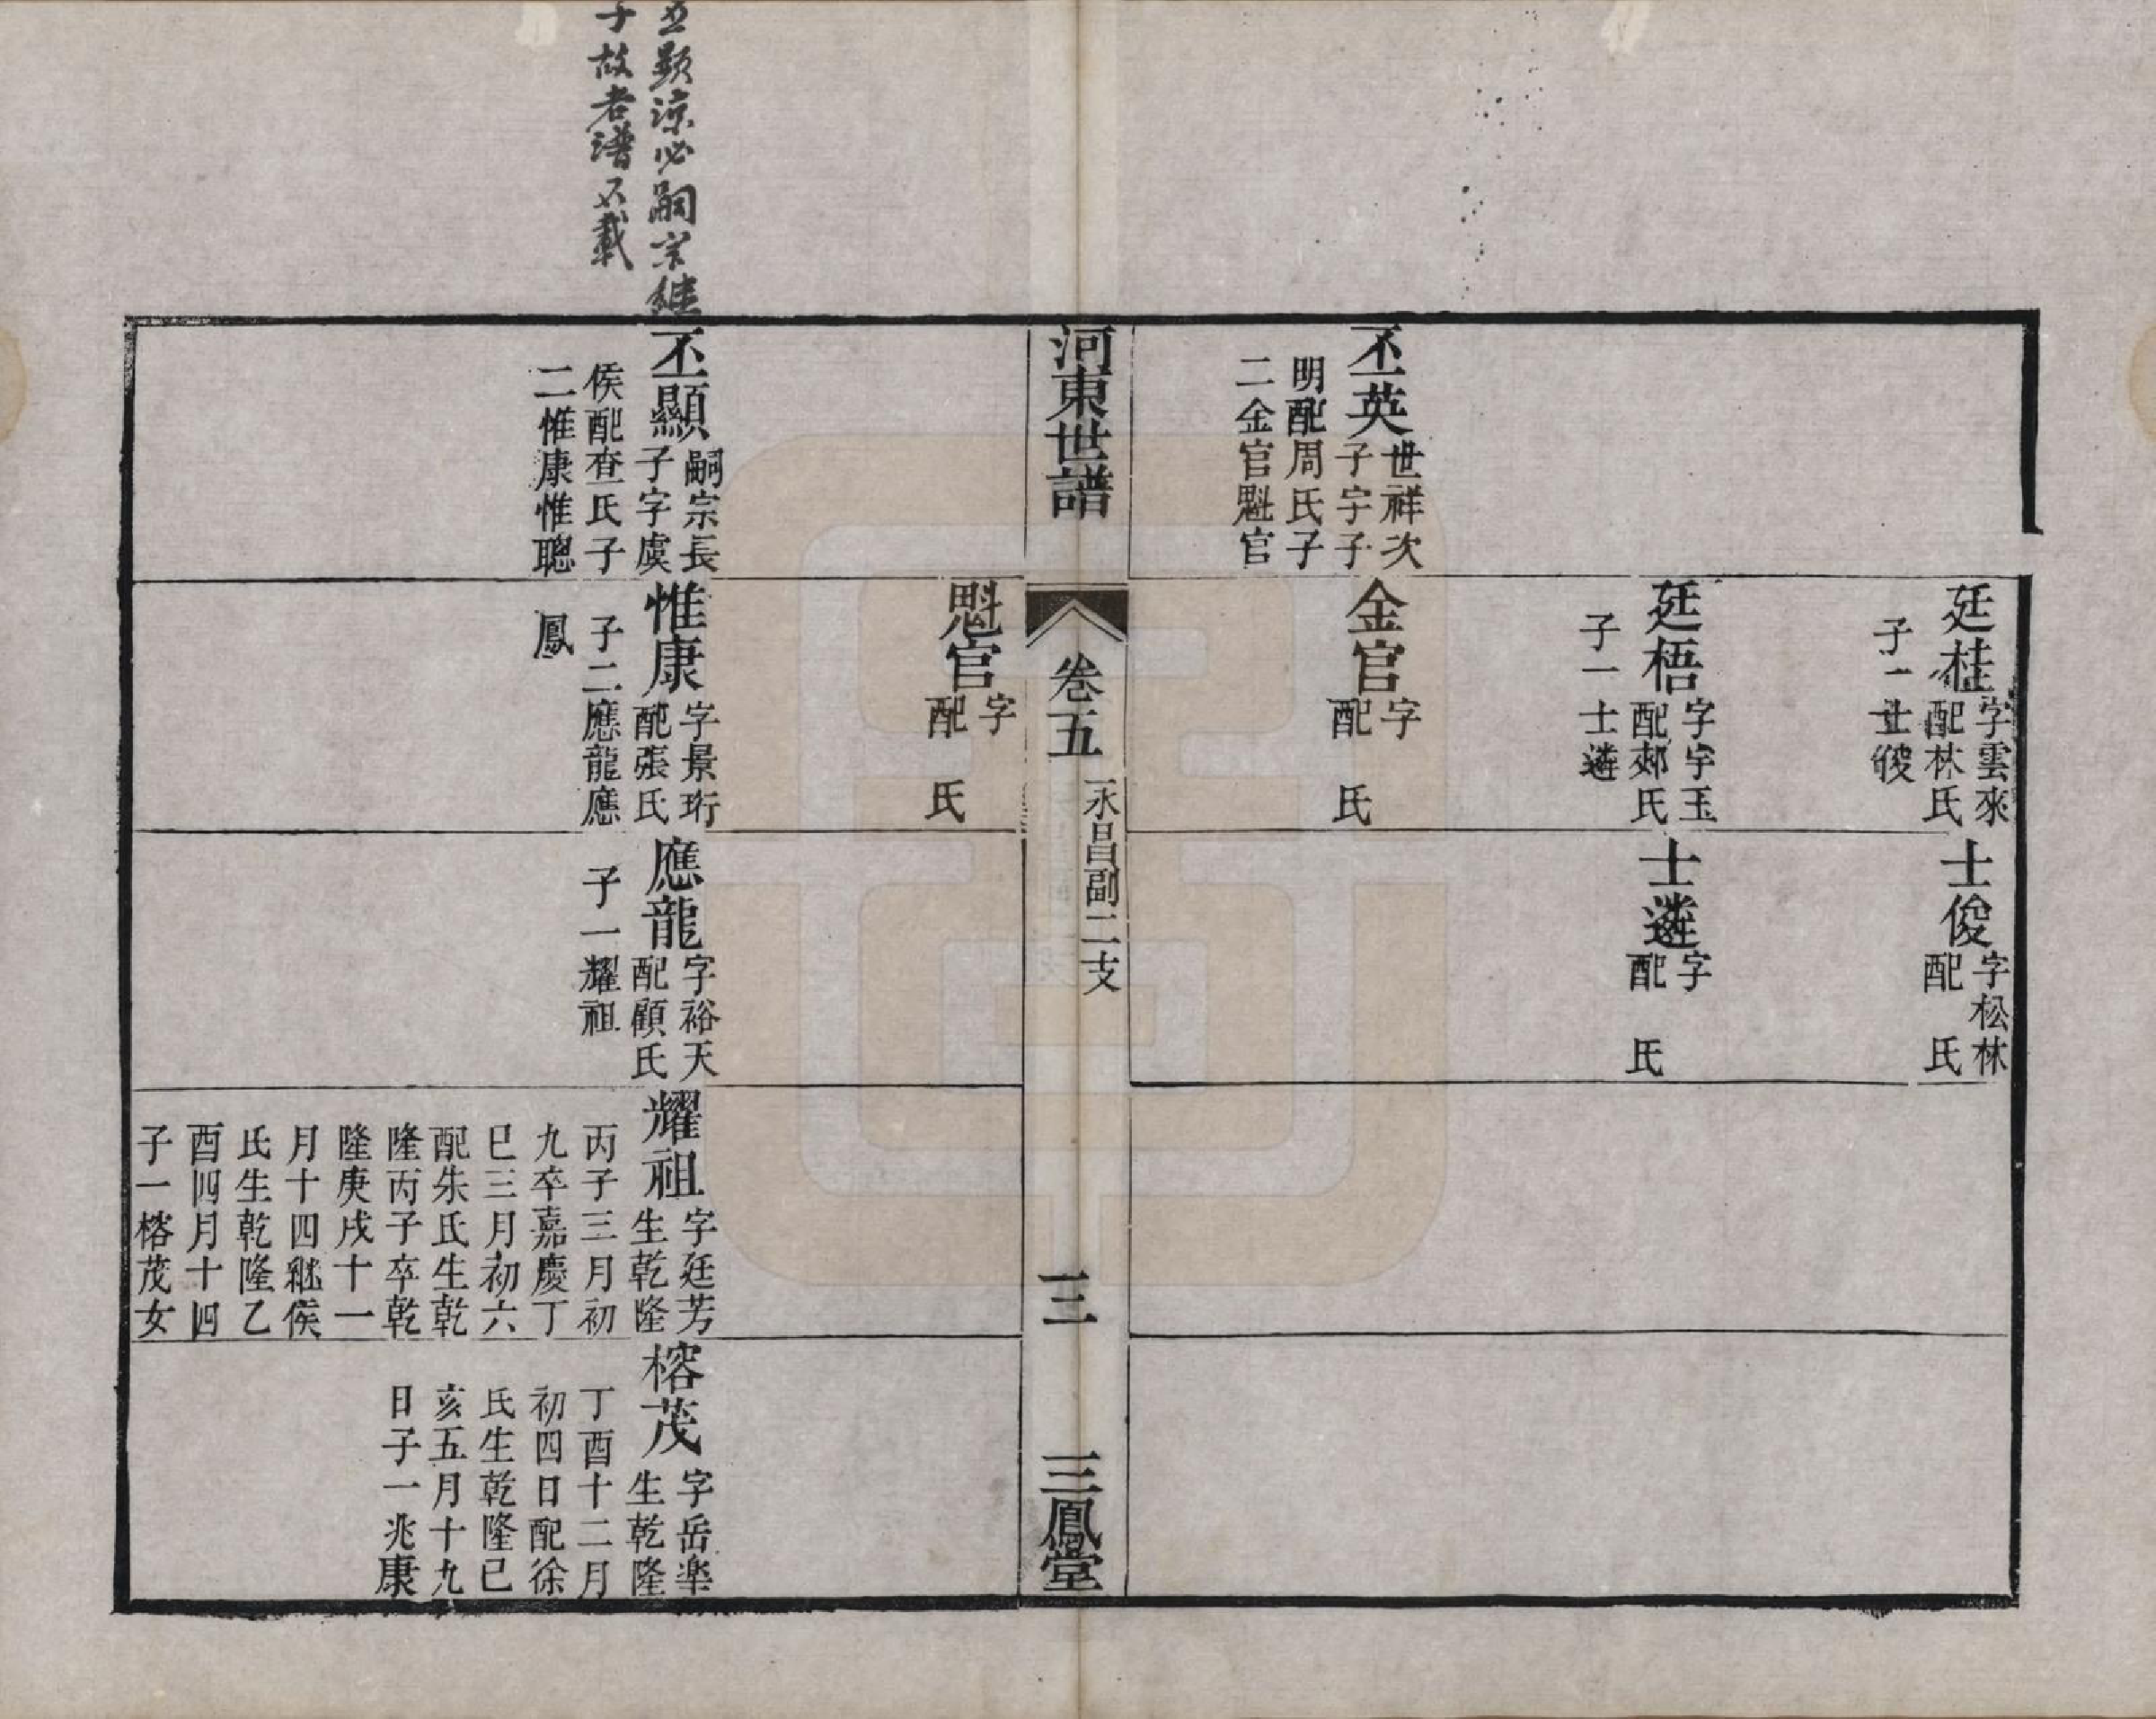 廷桂
字雲來
配林氏
子一士俊
廷梧
字宇玉
配郟氏
子一士遴
士俊
字松林
配　氏
士遴
字
配　氏
丕英
世祥次
子字子
明配周氏子
二金官魁官
金官
字
配　氏
河東世譜
卷五
永昌副二支
三
三鳳堂
魁官
字
配　氏
顯諒必嗣宗繼
子故老譜不載
丕顯
嗣宗長
子字虞
侯配查氏子
二惟康惟聰
惟康
字景珩
配張氏
子二應龍應
鳳
應龍
字裕天
配顧氏
子一耀祖
耀祖
字廷芳
生乾隆
丙子三月初
九卒嘉慶丁
巳三月初六
配朱氏生乾
隆丙子卒乾
隆庚戌十一
月十四繼侯
氏生乾隆乙
酉四月十四
子一榕茂女
榕茂
字岳樂
生乾隆
丁酉十二月
初四日配徐
氏生乾隆己
亥五月十九
日子一兆康